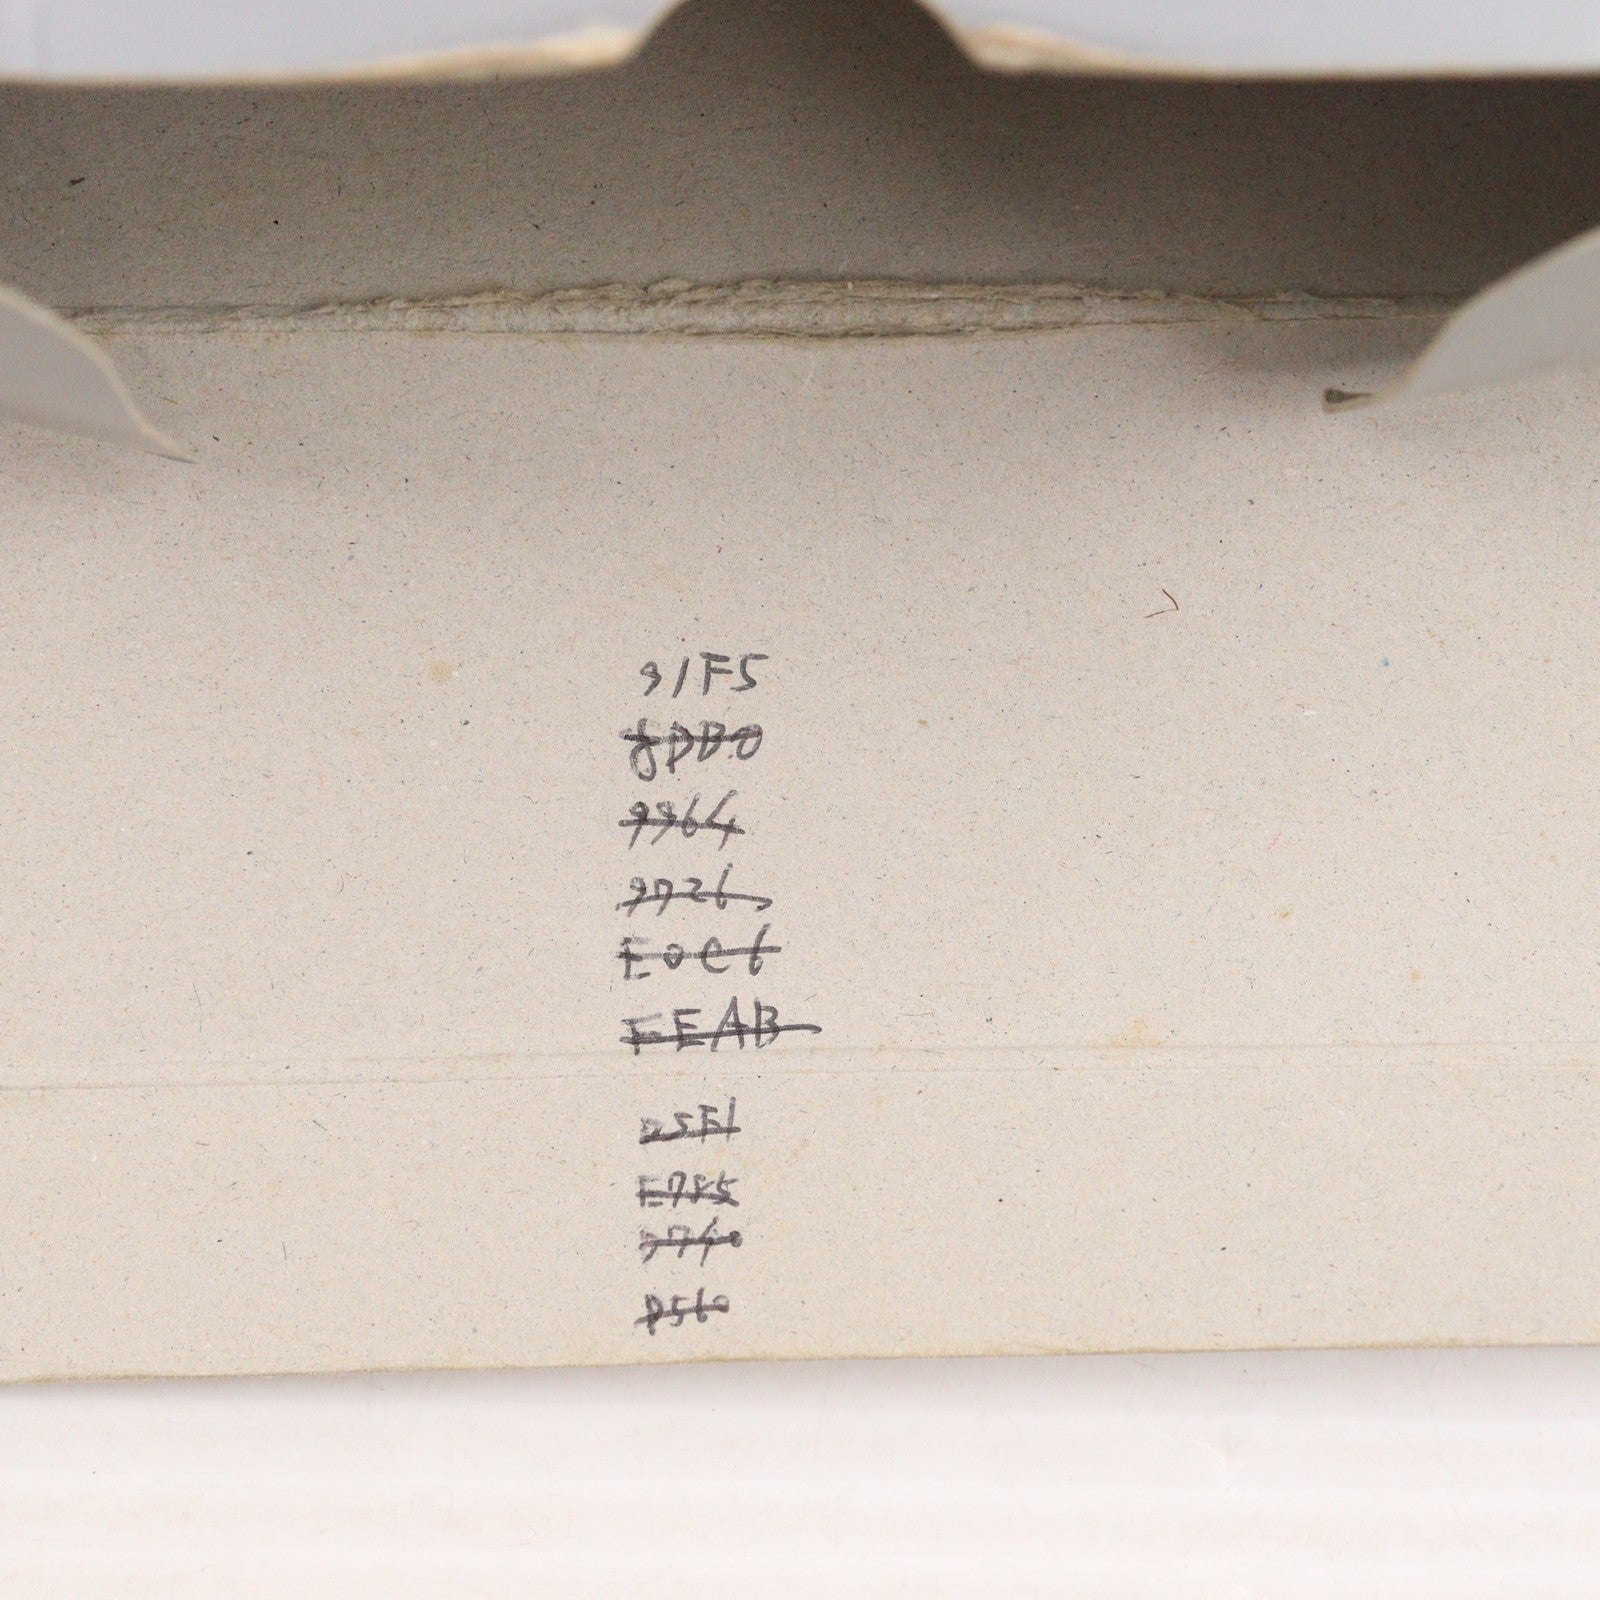 91F5
8DB0
9964
9726
E0C6
FEAB
D5E1
E785
9740
D560